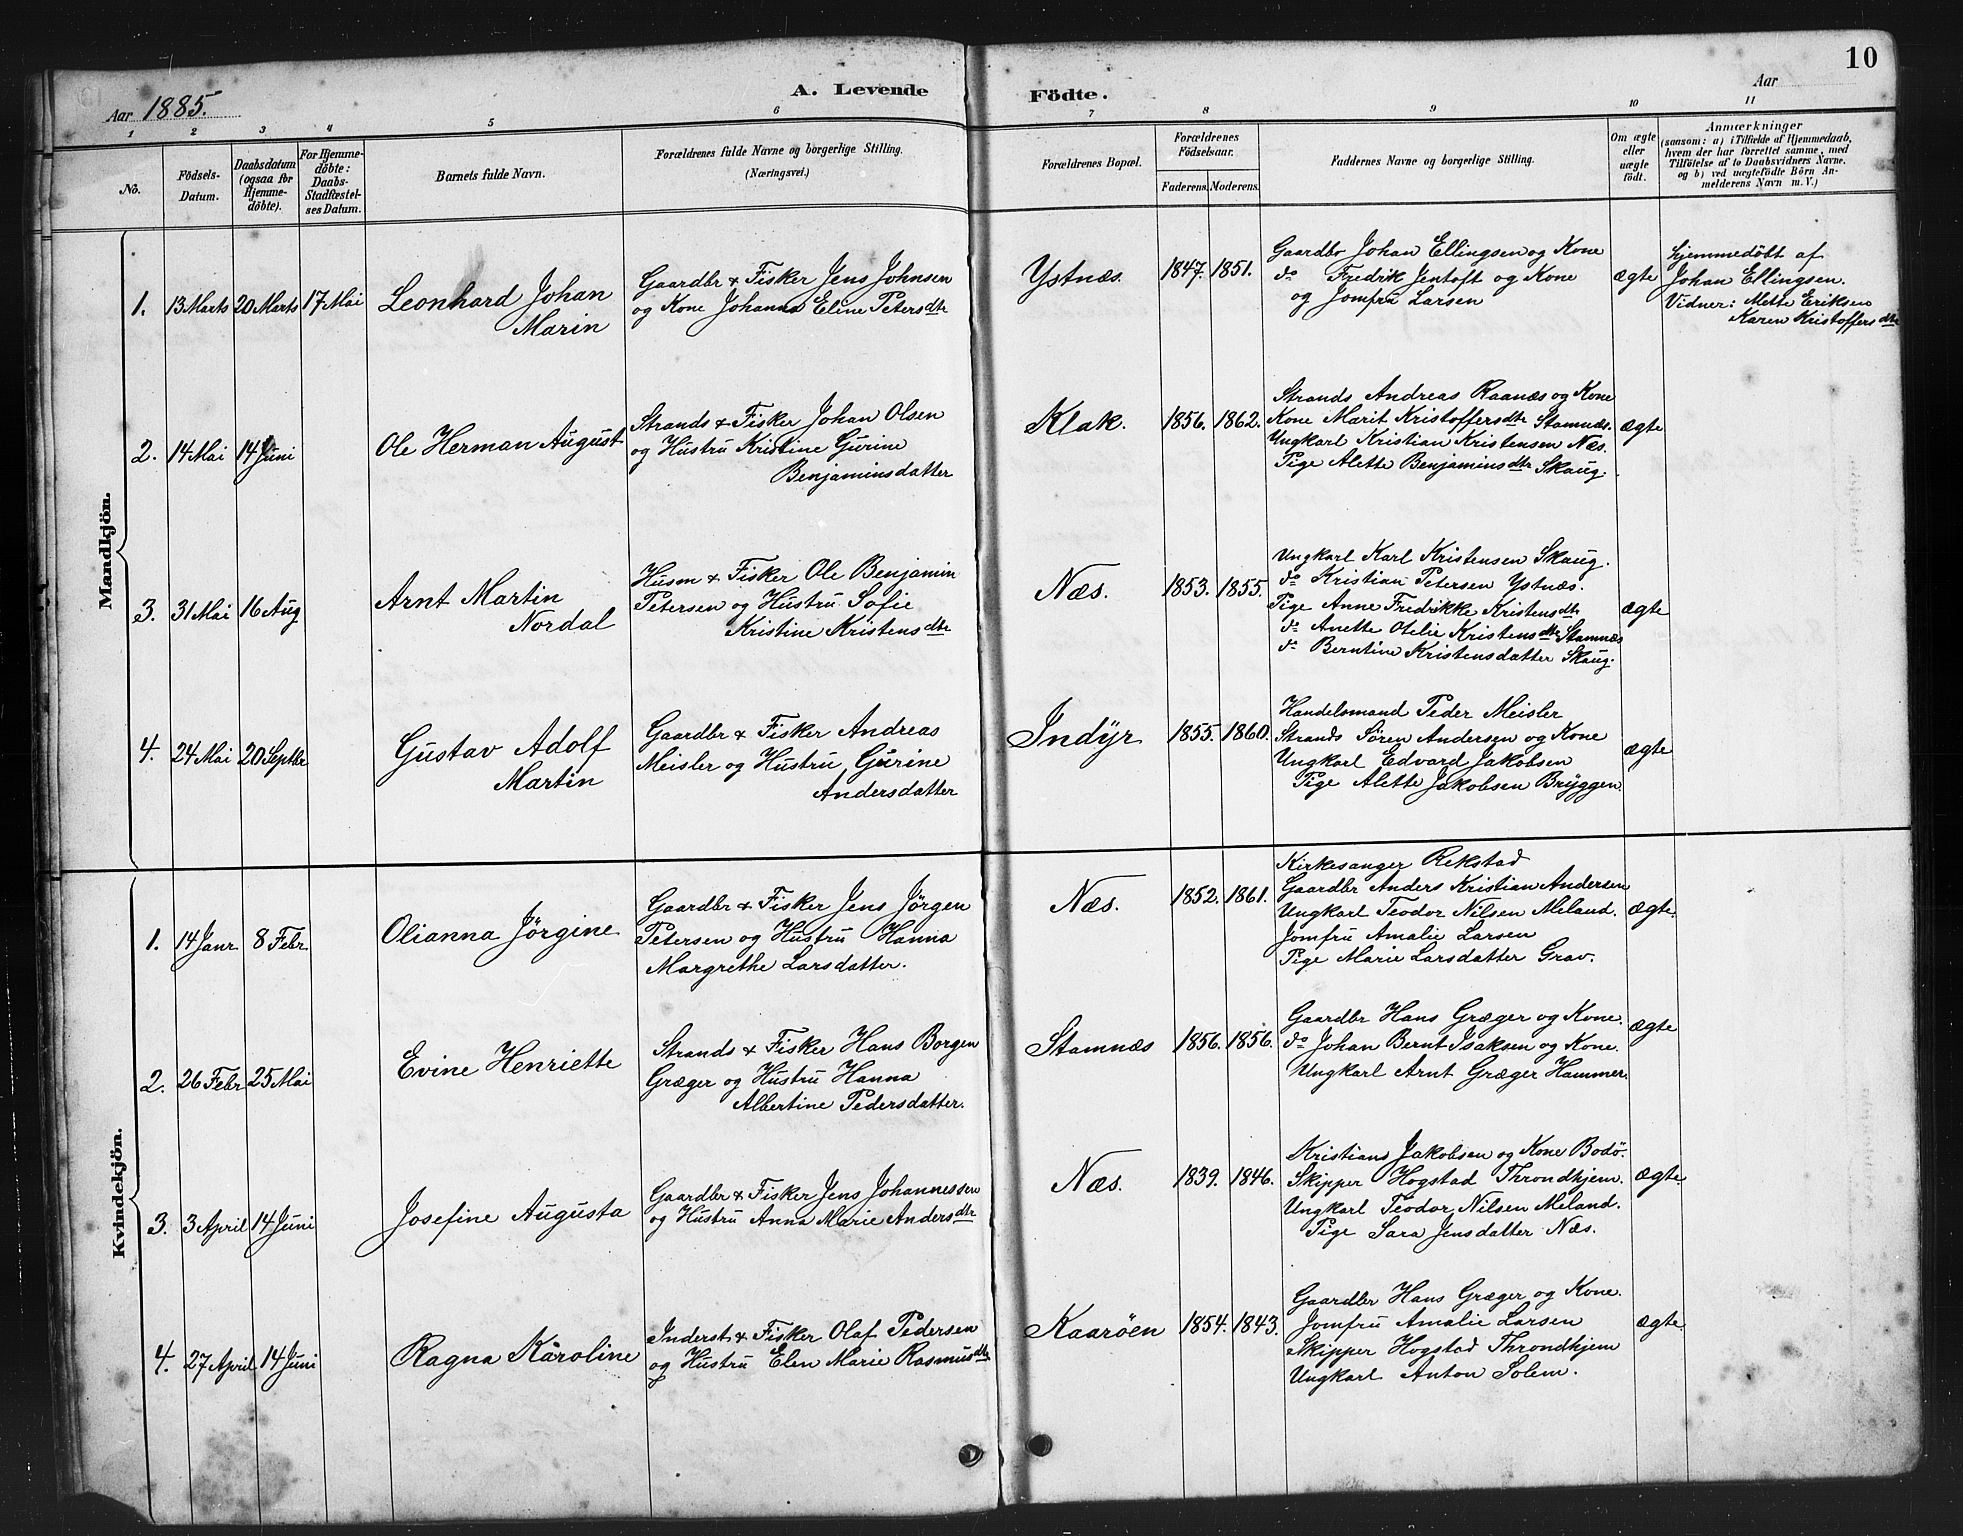 10
A. Levende Födte.
Aar 1885.
Aar
1 2 3 4 5 6 7 8 9 10 11
No.
Födsels-Datum.
Daabsdatum (ogsaa for Hjemmedöbte).
For Hjemmedöbte: Daabs-Stadfæstelses Datum.
Barnets fulde Navn.
Forældrenes fulde Navne og borgerlige Stilling. (Næringsvei.)
Forældrenes Bopæl.
Forældrenes Födselsaar.
Faderens. Moderens.
Faddernes Navne og borgerlige Stilling.
Om ægte eller uægte födt.
Anmærkninger
(saasom: a) i Tilfælde af Hjemmedaab, hvem der har forrettet samme, med Tilföielse af to Daabsvidners Navne. og b) ved uægtefödte Börn Anmelderens Navn m. V.)
Mandkjön.
1. 13 Marts 20 Marts 17 Mai
Leonhard Johan
Marin
Gaardbr & Fisker Jens Johnsen
og Kone Johanna Eline Petersdtr
Ystnæs. 1847. 1851.
Gaardbr Johan Ellingsen og Kone
do Fredrik Jentoft og Kone
og Jomfru Larsen
ægte
hjemmedöbt af
Johan Ellingsen.
Vidner: Mette Eriksen
Karen Kristoffersdtr
2. 14 Mai 14 Juni
Ole Herman August
Strands & Fisker Johan Olsen
og Hustru Kristine Gurine
Benjaminsdatter
Klak. 1856. 1862.
Strands Andreas Raanæs og Kone
Kone Marit Kristoffersdtr Stamnæs.
Ungkarl Kristian Kristensen Næs.
Pige Alette Benjaminsdtr Skaug.
ægte
3. 31 Mai 16 Aug
Arnt Martin
Nordal
Husm & Fisker Ole Benjamin
Petersen og Hustru Sofie
Kristine Kristensdtr
Næs. 1853. 1855.
Ungkarl Karl Kristensen Skaug.
do Kristian Petersen Ystnæs.
Pige Anne Fredrikke Kristensdtr
do Anette Otelie Kristensdtr Stamnæs
do Berntine Kristensdatter Skaug.
ægte
4. 24 Mai 20 Septbr
Gustav Adolf
Martin
Gaardbr & Fisker Andreas
Meisler og Hustru Gurine
Andersdatter
Indyr 1855. 1860.
Handelsmand Peder Meisler
Strands Sören Andersen og Kone
Ungkarl Edvard Jakobsen
Pige Alette Jakobsen Bryggen.
ægte
Kvindekjön.
1. 14 Janr 8 Febr
Olianna Jörgine
Gaardbr & Fisker Jens Jörgen
Petersen og Hustru Hanna
Margrethe Larsdatter.
Næs. 1852. 1861.
Kirkesanger Rekstad
Gaardbr Anders Kristian Andersen
Ungkarl Teodor Nilsen Meland.
Jomfru Amalie Larsen
Pige Marie Larsdatter Grav.
ægte.
2. 26 Febr 25 Mai
Evine Henriette
Strands & Fisker Hans Borgen
Græger og Hustru Hanna
Albertine Pedersdatter.
Stamnæs 1856. 1856.
Gaardbr Hans Græger og Kone.
do Johan Bernt Isaksen og Kone.
Ungkarl Arnt Græger Hammer.
ægte
3. 3 April 14 Juni
Josefine Augusta
Gaardbr & Fisker Jens Johannessen
og Hustru Anna Marie Andersdtr
Næs. 1839. 1846.
Kristians Jakobsen og Kone Bodö.
Skipper Hogstad Throndhjem.
Ungkarl Teodor Nilsen Meland.
Pige Sara Jensdatter Næs.
ægte.
4. 27 April 14 Juni
Ragna Karoline
Inderst & Fisker Olaf Pedersen
og Hustru Elen Marie Rasmusdtr
Kaaröen 1854. 1843.
Gaardbr Hans Græger og Kone.
Jomfru Amalie Larsen
Skipper Hogstad Throndhjem
Ungkarl Anton Solem.
ægte.